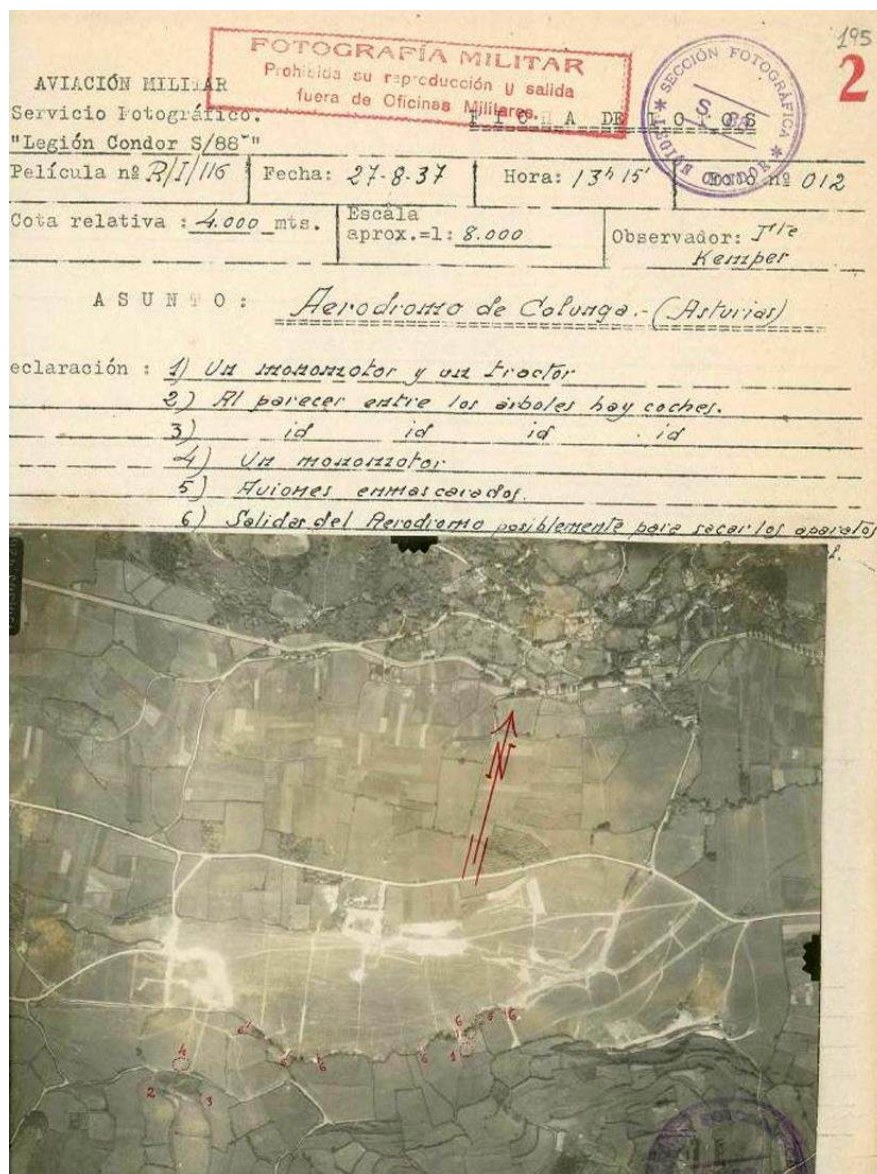 195
2
FOTOGRAFÍA MILITAR
Prohibida su reproducción y salida
fuera de Oficinas Militares.
SECCIÓN FOTOGRÁFICA
S/88
LEGIÓN CONDOR
AVIACIÓN MILITAR
Servicio Fotográfico.
"Legión Condor S/88"
FICHA DE FOTOS
Película nº R/I/116
Fecha: 27-8-37
Hora: 13h 15'
nº 012
Cota relativa : 4.000 mts.
Escala
aprox.=1: 8.000
Observador:
Kemper
ASUNTO: Aerodromo de Colunga.-(Asturias)
eclaración : 1) Un monomotor y un tractor
2) Al parecer entre los árboles hay coches.
3) id id id id
4) Un monomotor
5) Aviones enmascarados.
6) Salidas del Aerodromo posiblemente para sacar los aparatos
N
6
5
6
6
6
6
6
1
4
2
3